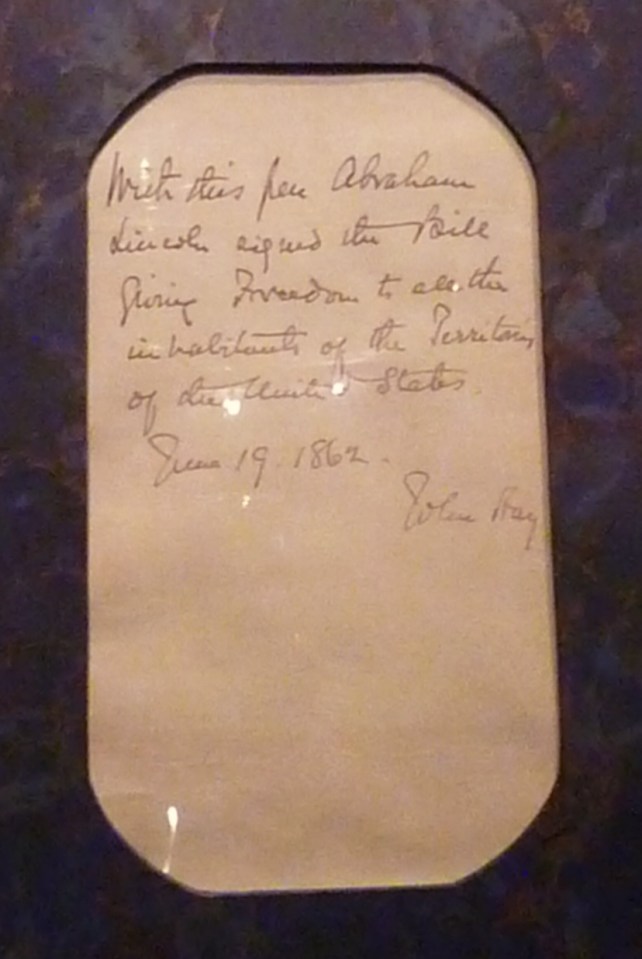 With this pen Abraham
Lincoln signed the Bill
Giving Freedom to all the
inhabitants of the Territories
of the United States.
June 19. 1862.
John Hay